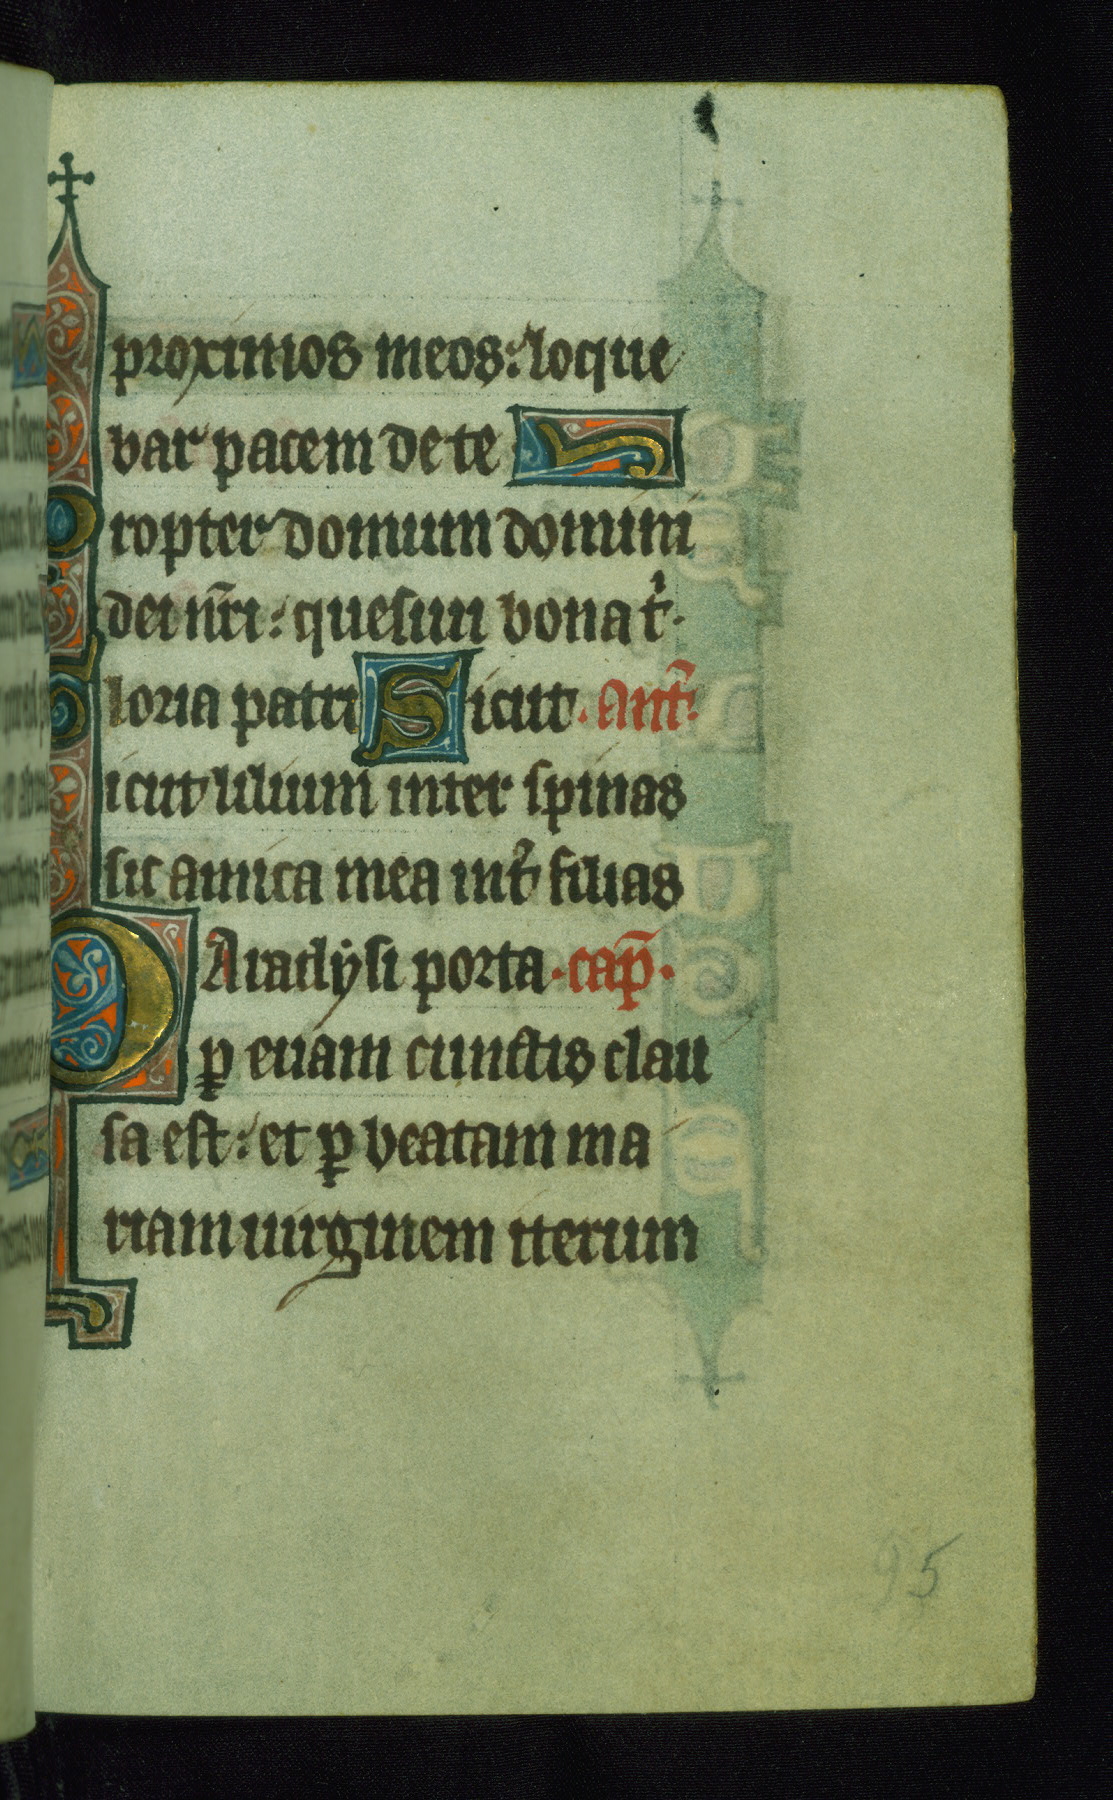 proximos meos: loque
bar pacem de te
Propter domum domini
dei nr̄i: quesiui bona t͛.
Gloria patri Sicut. ant̄.
Sicut lilium inter spinas
sic amica mea int͛ filias
PAradysi porta. cap̄.
ꝑ euam cunctis clau
sa est: et ꝑ beatam ma
riam uirginem iterum
95